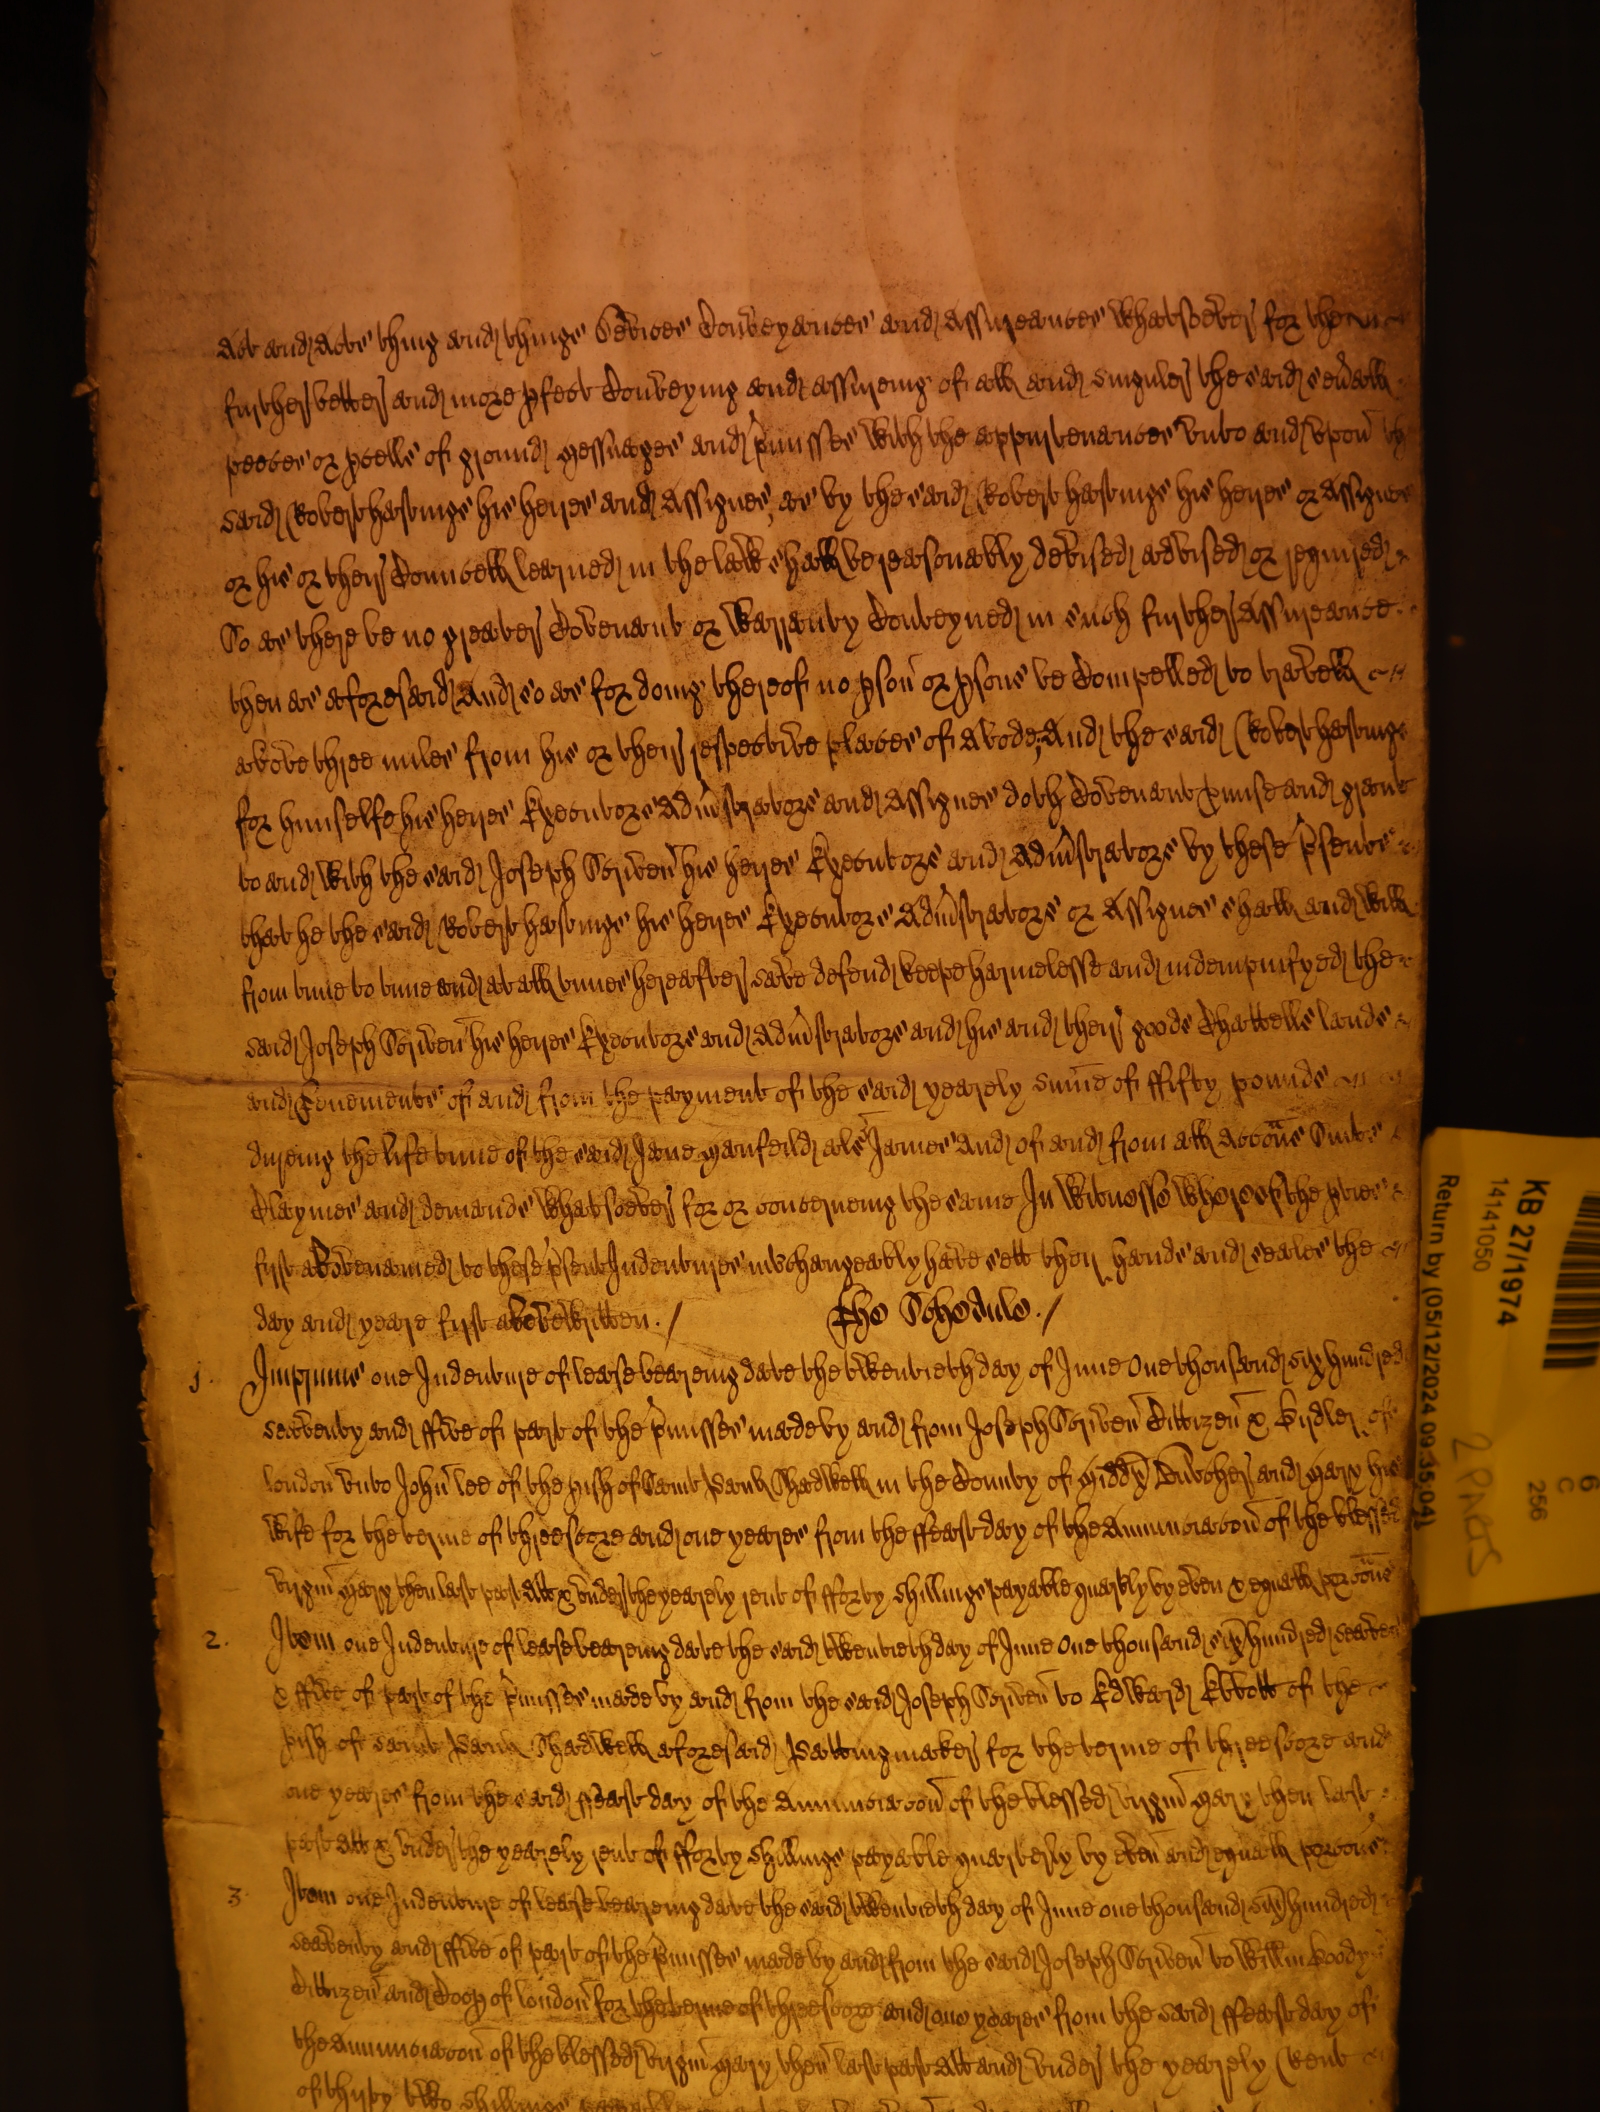 Act and Acts thing and things Devices Conveyances and Assureances whatsoever for the
further better and more pfect Conveying and assureing of all and singuler the said sevall
peeces or pcells of ground messuages and pmisses with the appurtenances unto and upon th
said Robert hastings his heires and Assignes, as by the said Robert hastings his heires or Assignes
or his or their Councell learned in the law shall be reasonably devised advised or required
So as there be no greater Covenant or warranty Conteyned in such further Assureance
then as aforesaid And so as for doing thereof no pson or psons be Compelled to travell
above three miles from his or their respective places of Abode; And the said Robert hastings
for himselfe his heires Executors Admistrators and Assignes doth Covenant pmise and grant
to and with the said Joseph Scriven his heires Executors and Admistrators by these psents
that he the said Robert hastings his heires Executors Admistrators or Assignes shall and will
from time to time and at all times hereafter save defend keepe harmelesse and indempnifyed the
said Joseph Scriven his heires Executors and Admistrators and his and their goods Chattells lands
and Tenements of and from the payment of the said yearely sume of ffifty pounds
dureing the life time of the said Jane Manfeild als James And of and from all Accons Suits
Claymes and demands whatsoever for or concerneing the same In Witnesse whereof the pties
first abovenamed to these psent Indentures interchangeably have sett their hands and seales the
day and yeare first abovewritten. / The Schedule. /
1. Imprimis one Indenture of lease beareing date the twentieth day of June One thousand six hundred
seaventy and ffive of part of the pmisses made by and from Joseph Scriven Cittizen & Girdler of
london unto John lee of the pish of Saint Paul Shadwell in the County of Middx Butcher and Mary his
wife for the terme of threescore and one yeares from the ffeast day of the Annunciacon of the blessed
virgin Mary then last past Att & under the yearely rent of fforty shillings payable quarterly by even & equall porcons
2. Item one Indenture of lease beareing date the said twentieth day of June One thousand six hundred seaventy
& ffive of part of the pmisses made by and from the said Joseph Scriven to Edward Ebbott of the
pish of Saint Paul Shadwell aforesaid Pattingmaker for the terme of threescore and
one yeares from the said ffeast day of the Annunciacon of the blessed virgin Mary then last
past Att & under the yearely rent of fforty shillings payable quarterly by even and equall porcons
3. Item one Indenture of lease beareing date the said twentieth day of June one thousand six hundred
seaventy and ffive of part of the pmisses made by and from the said Joseph Scriven to Willm Goody
Cittizen and Coop of london for the terme of threescore and one yeares from the said ffeast day of
the Annunciacon of the blessed virgin Mary then last past Att and under the yearely Rent
of thirty two shillings
KB 27/1974
14141050
Return by (05/12/2024 09:35:04)
6
C
256
2 PARTS